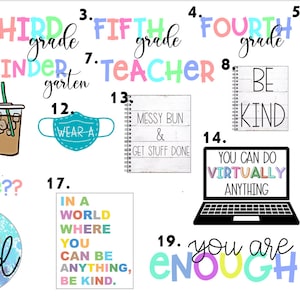 THIRD grade
3. FIFTH grade
4. FOURTH grade
5
INDER garten
7. TEACHER
8.
BE
KIND
12.
WEAR-A
13.
MESSY BUN
&
GET STUFF DONE
14.
YOU CAN DO
VIRTUALLY
ANYTHING
??
17.
IN A
WORLD
WHERE
YOU
CAN BE
ANYTHING,
BE KIND.
19. you are
ENOUGH